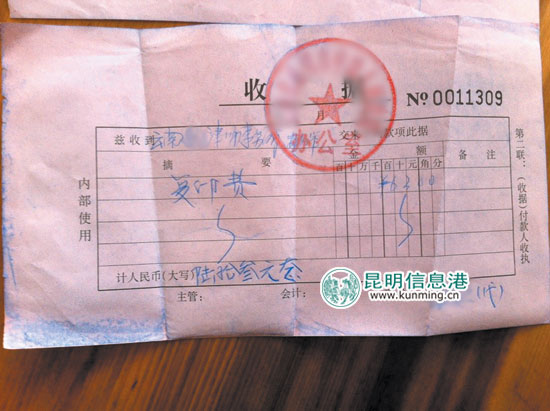 收 据 № 0011309
办公室
月
兹收到 云南 律师事务所 交来 款项此据
摘 要 金 额 备 注
百 十 万 千 百 十 元 角 分
复印费 ¥6300
计人民币(大写) 陆拾叁元整
主管: 会计: (代)
内部使用
第二联:(收据)付款人收执
昆明信息港
www.kunming.cn